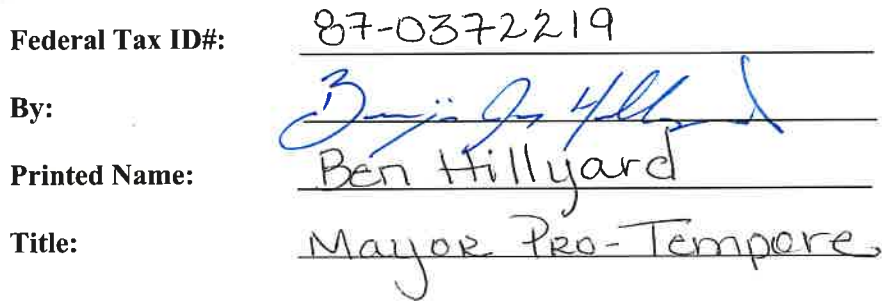 Federal Tax ID#: 87-0372219
By:
Printed Name: Ben Hillyard
Title: Mayor Pro-Tempore